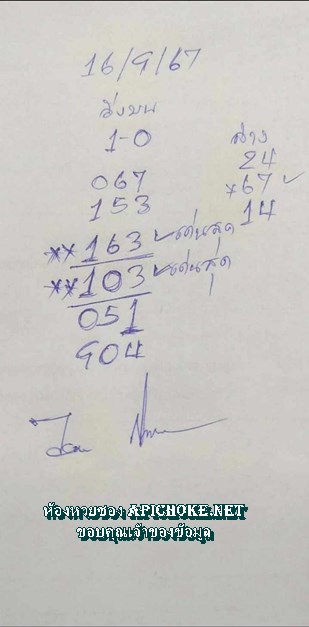 16/9/67
วิ่งบน
1-0
067
153
**163 เด่นสุด
**103 เด่นสุด
051
904
ล่าง
24
*67
14
ห้องหวยซอง APICHOKE.NET
ขอบคุณเจ้าของข้อมูล